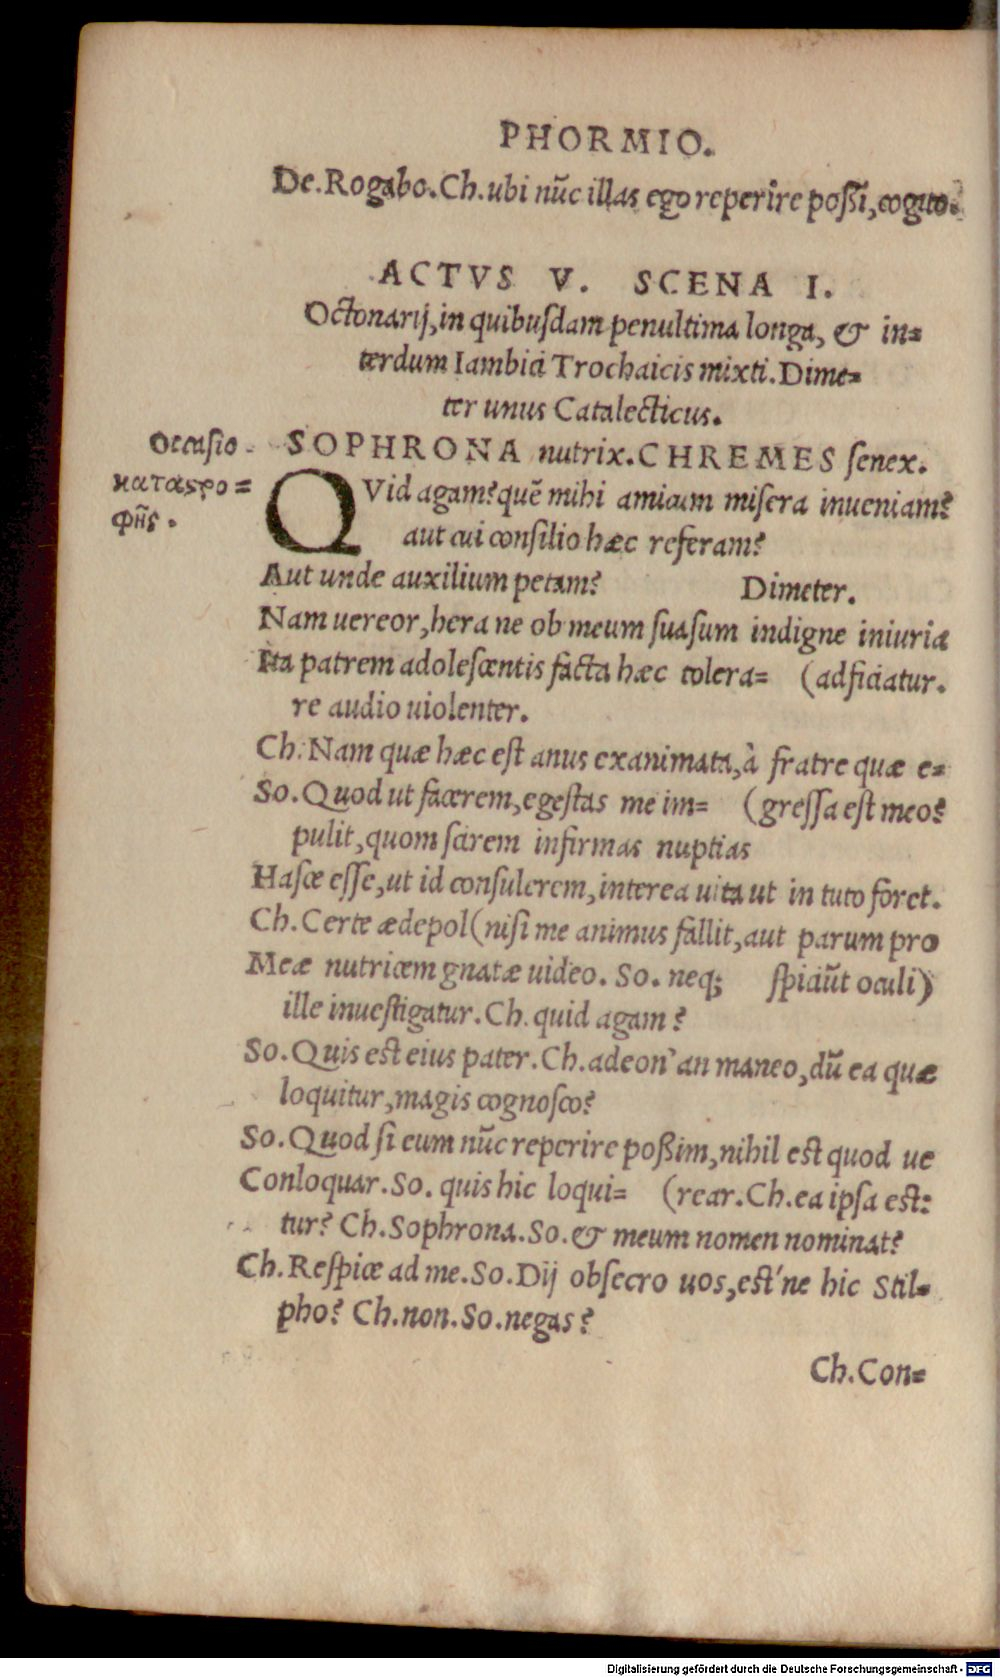 PHORMIO.
De. Rogabo. Ch. ubi nūc illas ego reperire poßī, cogito.
ACTVS V. SCENA I.
Octonarij, in quibusdam penultima longa, & in=
terdum Iambici Trochaicis mixti. Dime=
ter unus Catalecticus.
Occasio
καταστρο=
φῆς.
SOPHRONA nutrix. CHREMES senex.
QVid agam? quē mihi amicum misera inueniam?
aut cui consilio hæc referam?
Aut unde auxilium petam? Dimeter.
Nam uereor, hera ne ob meum suasum indigne iniuria
Ita patrem adolescentis facta hæc tolera= (adficiatur.
re audio uiolenter.
Ch. Nam quæ hæc est anus exanimata, à fratre quæ e=
So. Quod ut facerem, egestas me im= (gressa est meo?
pulit, quom scirem infirmas nuptias
Hasce esse, ut id consulerem, interea uita ut in tuto foret.
Ch. Certe ædepol (nisi me animus fallit, aut parum pro
Meæ nutricem gnatæ uideo. So. neq; spiciūt oculi)
ille inuestigatur. Ch. quid agam?
So. Quis est eius pater. Ch. adeon' an maneo, dū ea quæ
loquitur, magis cognosco?
So. Quod si eum nūc reperire poßim, nihil est quod ue
Conloquar. So. quis hic loqui= (rear. Ch. ea ipsa est:
tur? Ch. Sophrona. So. & meum nomen nominat?
Ch. Respice ad me. So. Dij obsecro uos, est'ne hic Stil=
pho? Ch. non. So. negas?
Ch. Con=
Digitalisierung gefördert durch die Deutsche Forschungsgemeinschaft - DFG